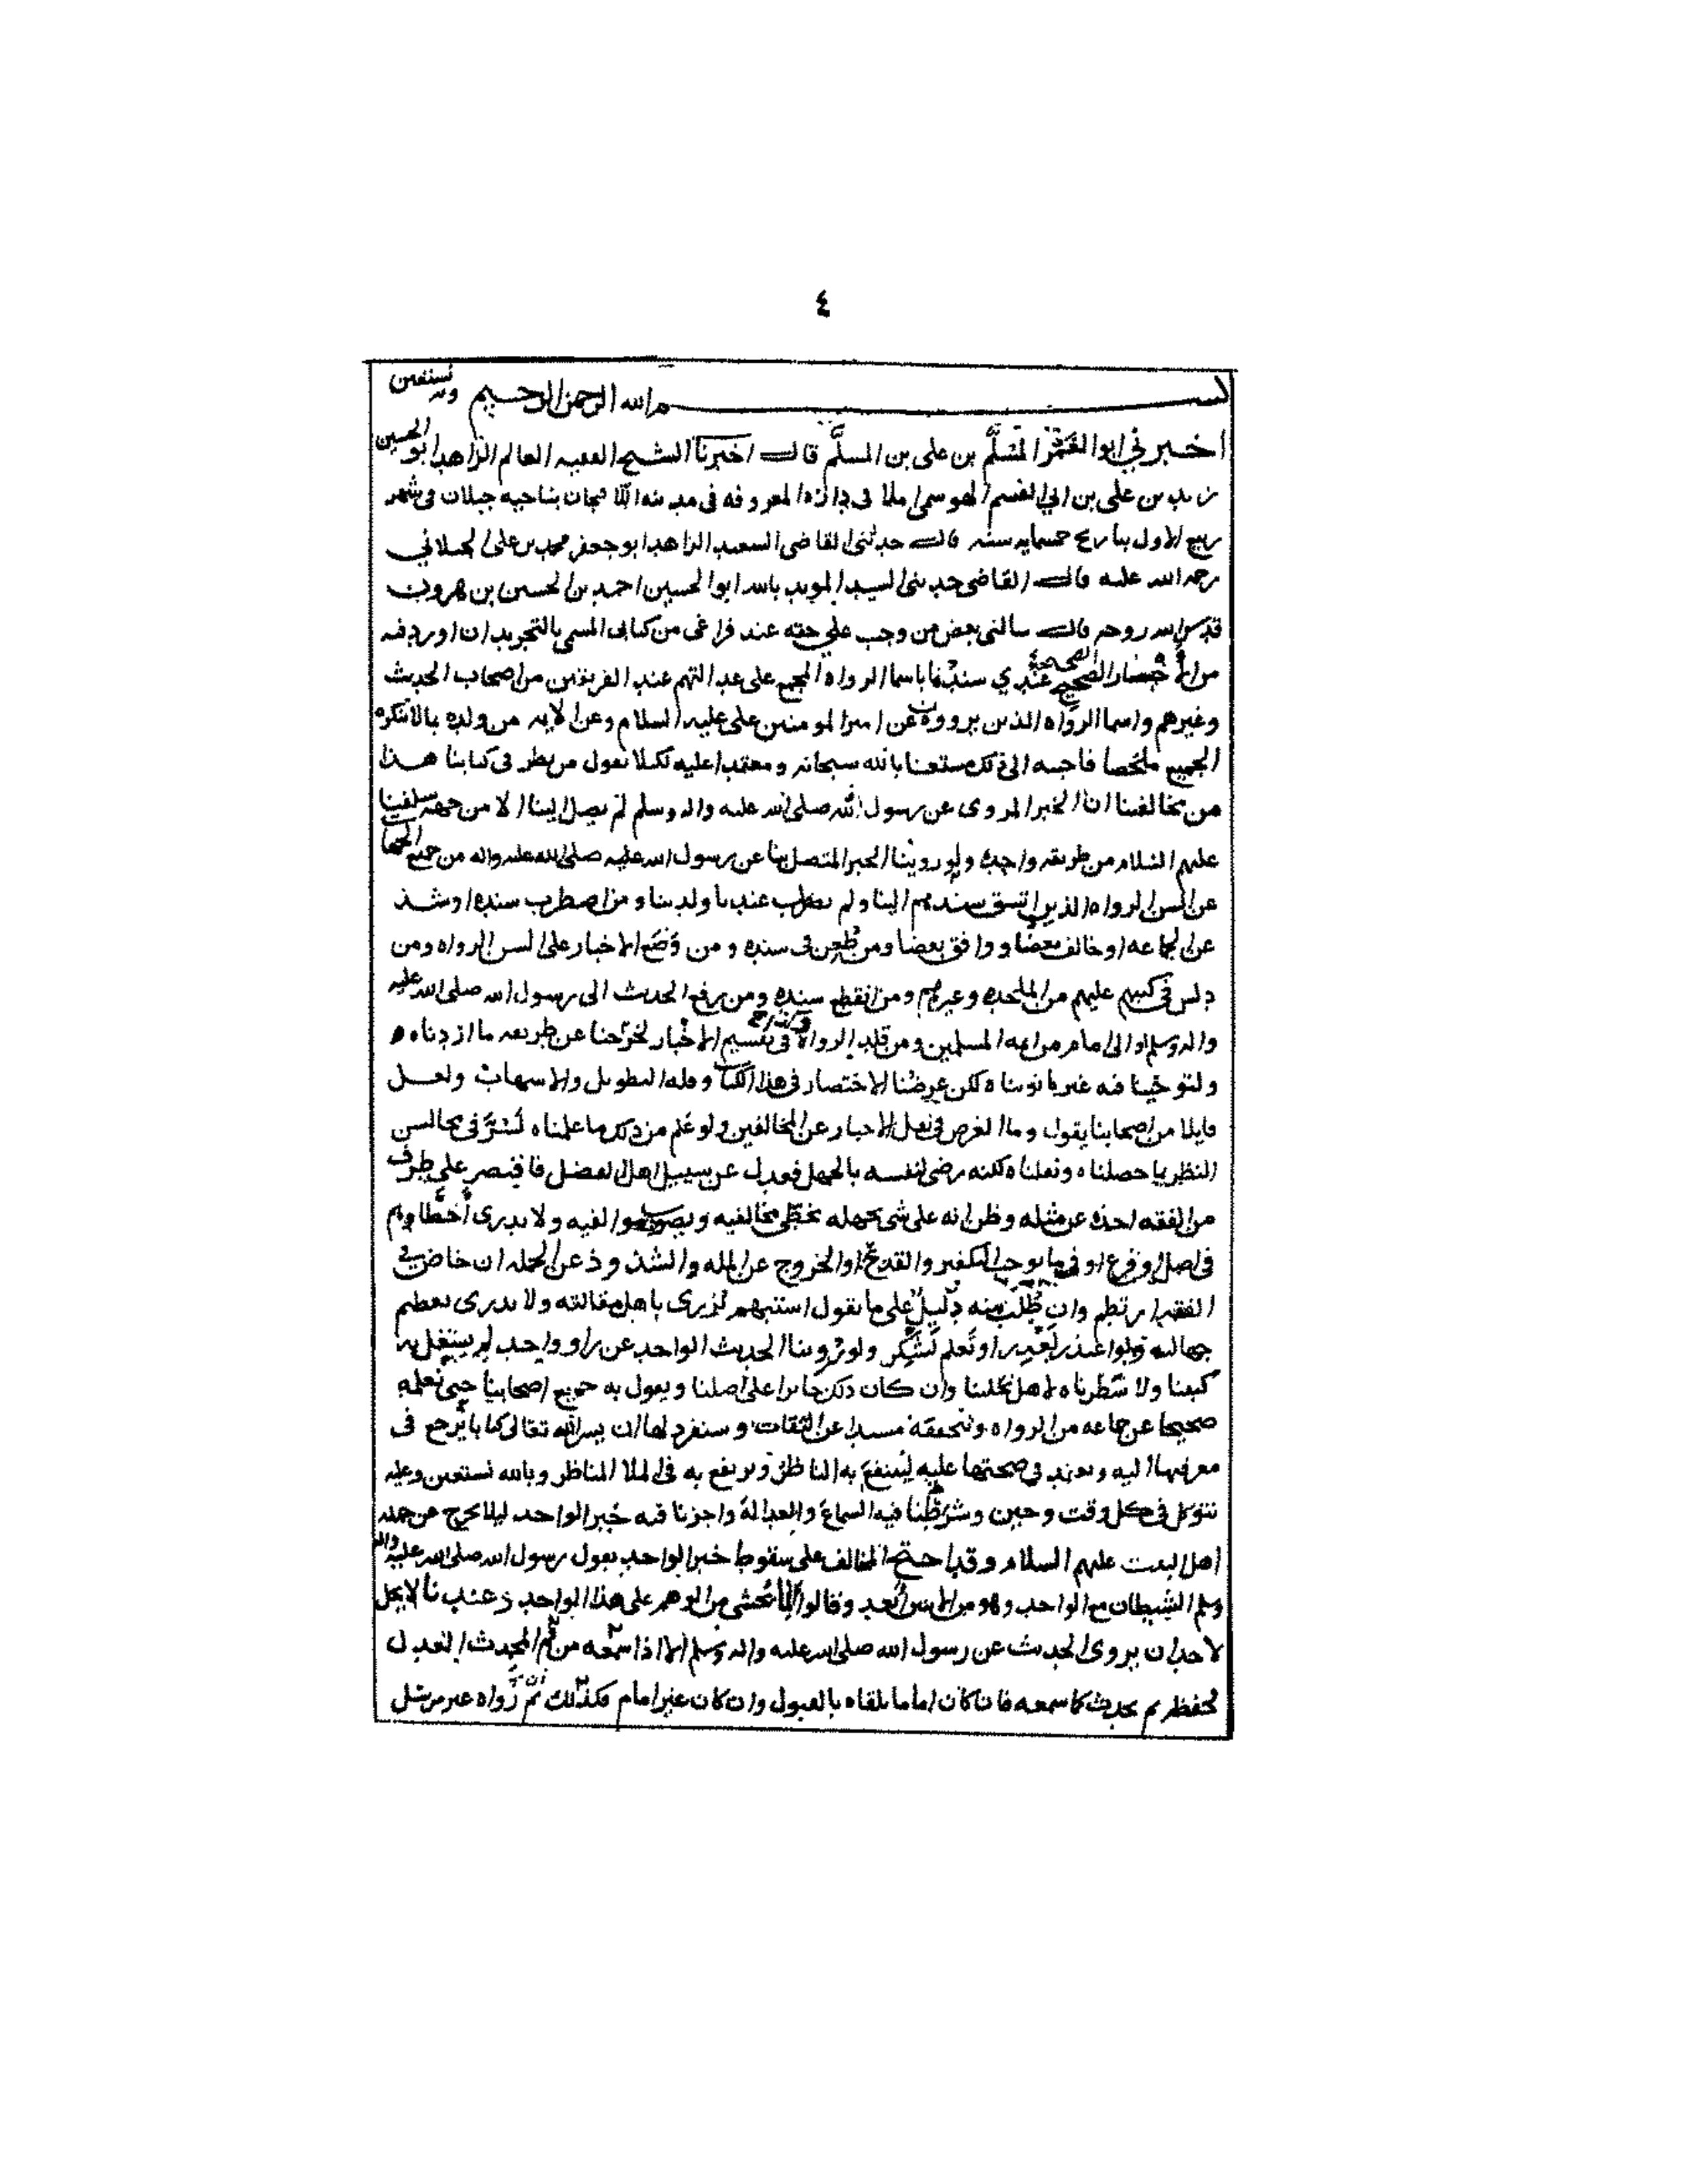 ٤
بسم الله الرحمن الرحيم وبه نستعين
اخبرني ابو الغمر المسلم بن على بن المسلم قال اخبرنا الشيخ الفقيه العالم الزاهد ابو الحسين
زيد بن على بن ابي القسم الهوسمي املا في داره المعروفة في مدينه بناحيه جيلان في شهر
ربيع الاول بتاريخ خمسمايه سنه قال حدثنى القاضى السعيد الزاهد ابو جعفر محمد بن على الجيلاني
رحمه الله عليه قال القاضى حدثنى السيد المويد بالله ابو الحسين احمد بن الحسين بن هرون
قدس الله روحه قال سالنى بعض من وجب علي حقه عند فراغى من كتابى المسمى بالتجريد ان اورد فيه
من الاخبار الصحيحة عندي سندها باسما الرواه المجمع على عدالتهم عند الفريقين من اصحاب الحديث
وغيرهم واسما الرواه الذين يروون عن امير المومنين على عليه السلام وعن الايمه من ولده بالاتفكره
الجميع ملخصا فاجبته الى ذلك مستعينا بالله سبحانه ومعتمدا عليه لكيلا يقول من ينظر فى كتابنا هذا
من مخالفينا ان الخبر المروى عن رسول الله صلى الله عليه واله وسلم لم يصل الينا الا من جهة سلفنا
عليهم السلام من طريقه واحده ولو روينا الخبر المتصل بنا عن رسول الله عليه صلى الله عليه واله من جميع الجهات
عن السن الرواه الذين اتسق سندهم الينا ولم يضطرب عندنا ولدينا ومن اضطرب سنده او شذ
عن الجماعه او خالف بعضا ووافق بعضا ومن طعن فى سنده ومن وضع الاخبار على السن الرواه ومن
دلس في كتبهم عليهم من الملحده وغيرهم ومن انقطع سنده ومن يرفع الحديث الى رسول الله صلى الله عليه
واله وسلم او الى امام من ايمه المسلمين ومن قلب الرواه فى تقسيم الاخبار لخرجنا عن طريقه ما اردناه
ولتوخينا فيه غير ما نويناه لكن غرضنا الاختصار في هذا الكتاب وقله التطويل والاسهاب ولعل
قايلا من اصحابنا يقول وما الغرض فى نقل الاخبار عن المخالفين ولو علم من ذلك ما علمناه فى مجالس
النظر ما حصلناه ونقلناه لكنه رضى لنفسه بالجهل فعدل عن سبيل اهل الفضل فاقتصر على طرف
من الفقه اخذه عن مثله وظن انه على شى بجهله يخطى مخالفيه ويصوب موالفيه ولا يدرى اخطاوهم
فى اصل او فرع او في ما يوجب التكفير والقدح او الخروج عن المله والشذوذ عن الجمله ان خاض في
الفقه ارتطم وان طلب منه دليل على ما يقول استبهم يزرى باهل مقالته ولا يدرى بعظم
جهالته عذر او تعلم ولو روينا الحديث الواحد عن راو واحد لم
كتبنا ولا سطرناه لاهل نحلتنا وان كان ذلك جايزا على اصلنا ويقول به جميع اصحابنا حتى نعلمه
صحيحا عن جماعه من الرواه ونتحققه مسندا عن الثقات وسنفرد لها ان يسر الله تعالى كتابا يرجع فى
معرفتها اليه ويعتمد في صحتها عليه لينتفع به الناظر ويرتفع به فى الملا المناظر وبالله نستعين وعليه
نتوكل فى كل وقت وحين وشرطنا فيه السماع والعدالة واجزنا فيه خبر الواحد ليلا يخرج عن جمله
اهل البيت عليهم السلام وقد احتج المخالف على سقوط خبر الواحد بقول رسول الله صلى الله عليه واله
وسلم الشيطان مع الواحد وهو من الاثنين ابعد وقالوا انما نخشى من الوهم على هذا الواحد وعندنا لا يحل
لاحد ان يروى الحديث عن رسول الله صلى الله عليه واله وسلم الا اذا سمعه من فم المحدث العدل
فحفظه ثم يحدث كما سمعه فان كان اماما تلقاه بالقبول وان كان غير امام فكذلك ثم رواه غير مرسل